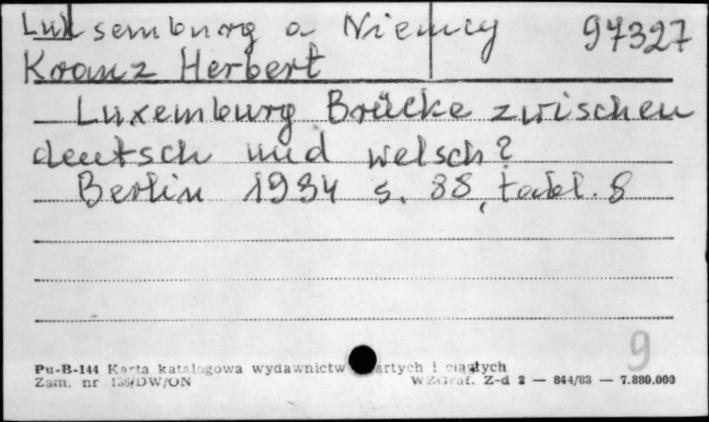 Luksemburg a Niemcy 97327
Kranz Herbert
Luxemburg Brücke zwischen
deutsch und welsch?
Berlin 1934 s. 88, tabl. 8
9
Pu-B-144 Karta katalogowa wydawnictw zwartych i ciągłych
Zam. nr 136/DW/ON WZGraf. Z-d 2 — 844/83 — 7.880.000